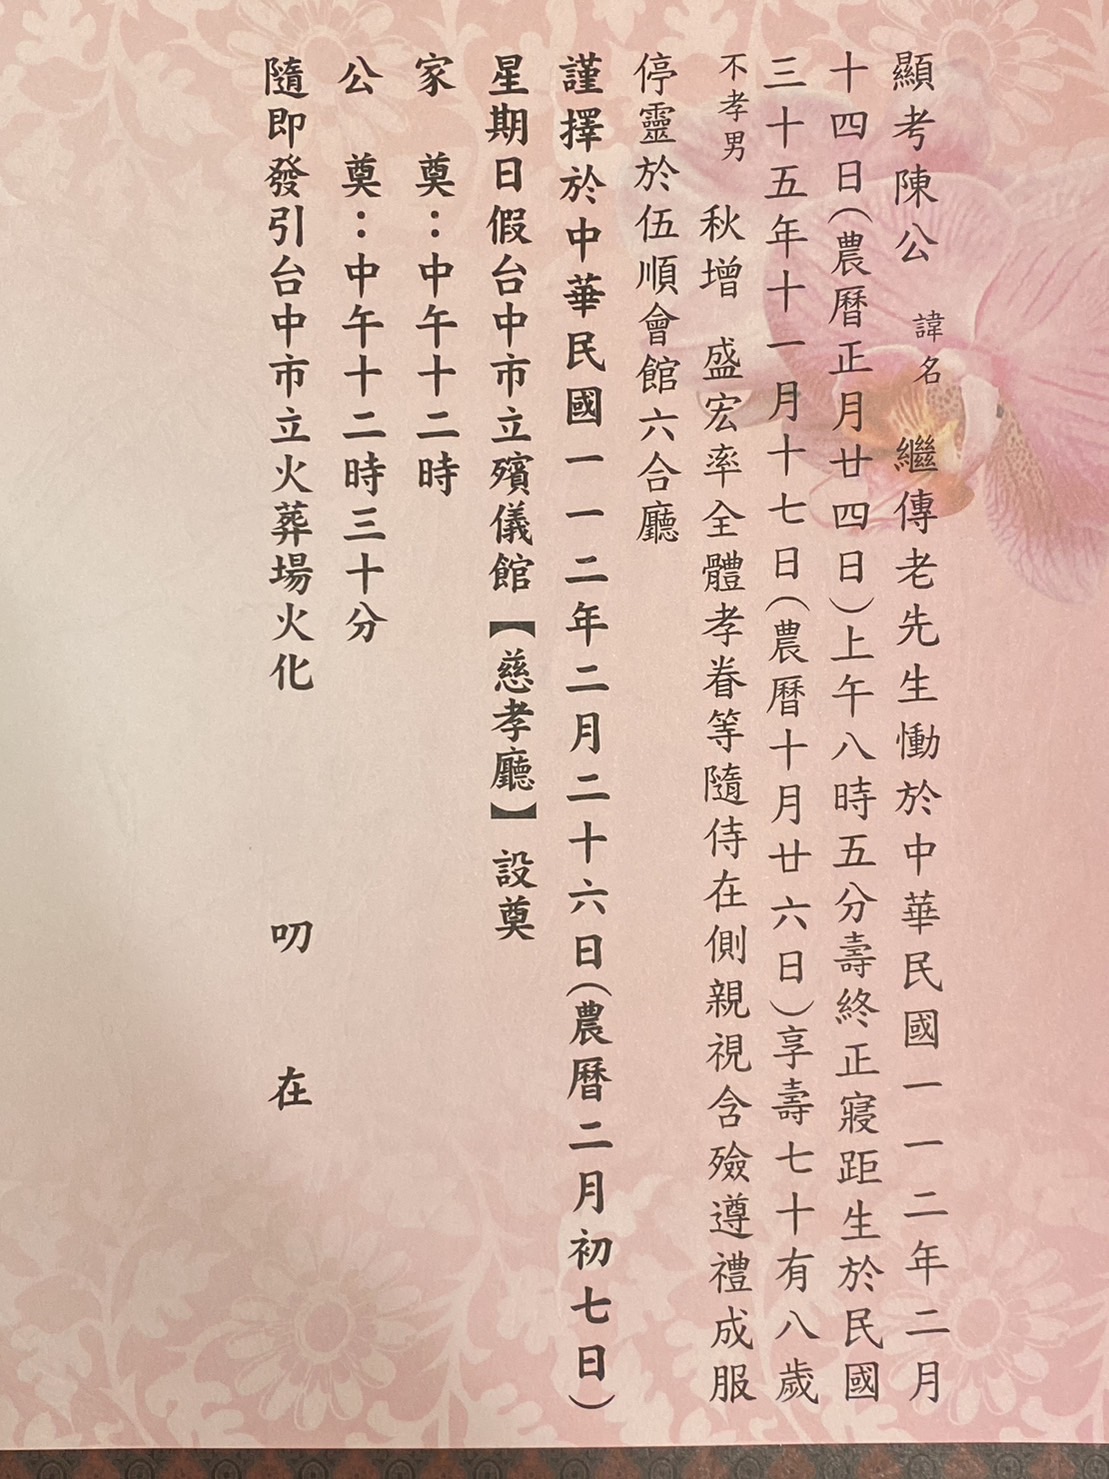 顯考陳公 諱名 繼傳老先生慟於中華民國一一二年二月
十四日(農曆正月廿四日)上午八時五分壽終正寢距生於民國
三十五年十一月十七日(農曆十月廿六日)享壽七十有八歲
不孝男 秋增 盛宏率全體孝眷等隨侍在側親視含殮遵禮成服
停靈於伍順會館六合廳
謹擇於中華民國一一二年二月二十六日(農曆二月初七日)
星期日假台中市立殯儀館【慈孝廳】設奠
家 奠:中午十二時
公 奠:中午十二時三十分
隨即發引台中市立火葬場火化 叨 在